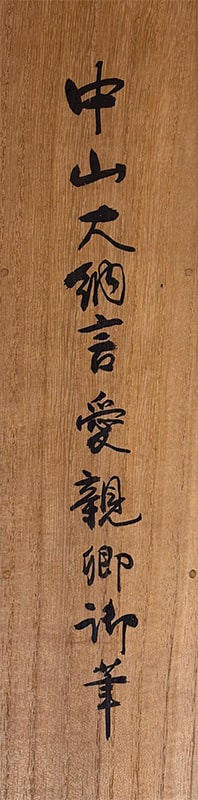 中山大納言愛親卿御筆